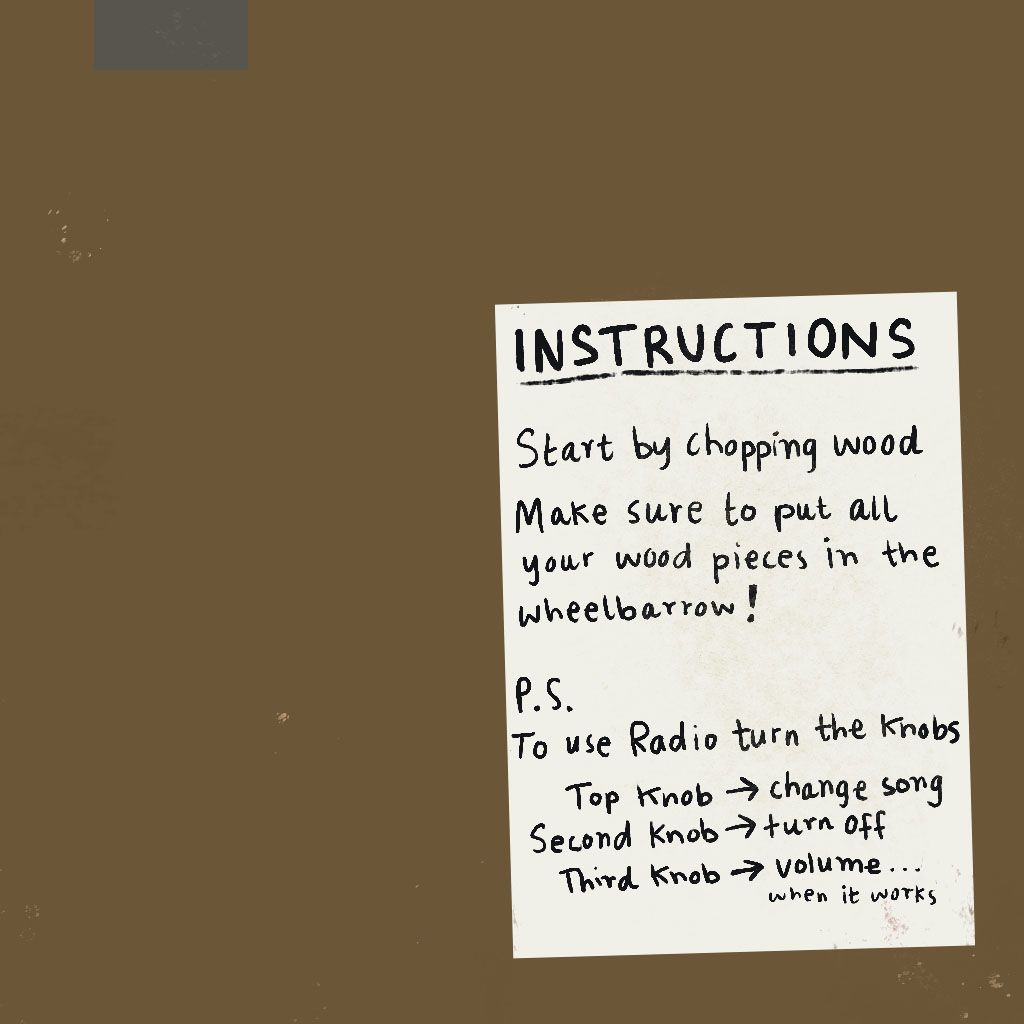 INSTRUCTIONS
Start by chopping wood
Make sure to put all
your wood pieces in the
wheelbarrow!
P.S.
To use Radio turn the Knobs
Top Knob → change song
Second Knob → turn off
Third Knob → volume...
when it works